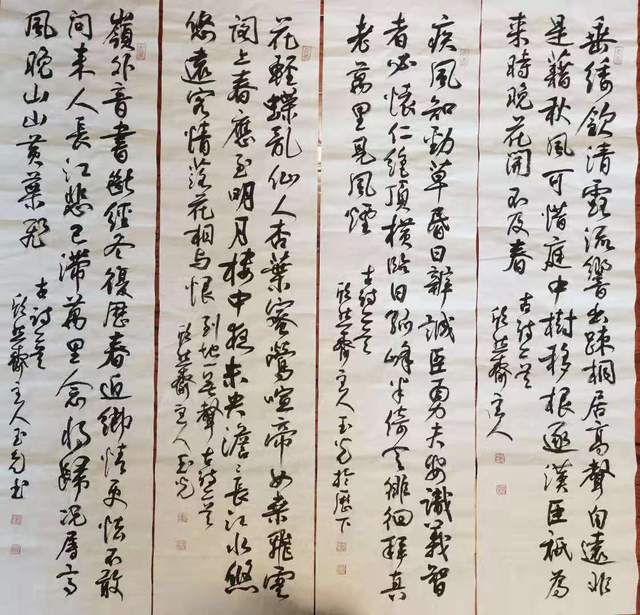 垂緌飲清露流響出疎桐居高聲自遠非
是藉秋風可惜庭中樹移根逐漢臣祇為
来時晚花開不及春
古詩二首
齋主人
疾風知勁草昏日辨誠臣勇夫安識義智
者必懷仁絶頂橫臨日孤峰半倚天徘徊拜真
老萬里見風煙
古詩二首
齋主人玉光於歷下
花輕蝶亂仙人杏葉密鶯喧帝女桑飛雲
閣上春應至明月樓中夜未央澹々長江水悠
悠遠客情落花相与恨到地一無聲古詩二首
齋主人玉光
嶺外音書斷經冬復歷春近鄉情更怯不敢
问来人長江悲已滯萬里念將歸況屬高
風晚山山黃葉飛
古詩二首
齋主人玉光書